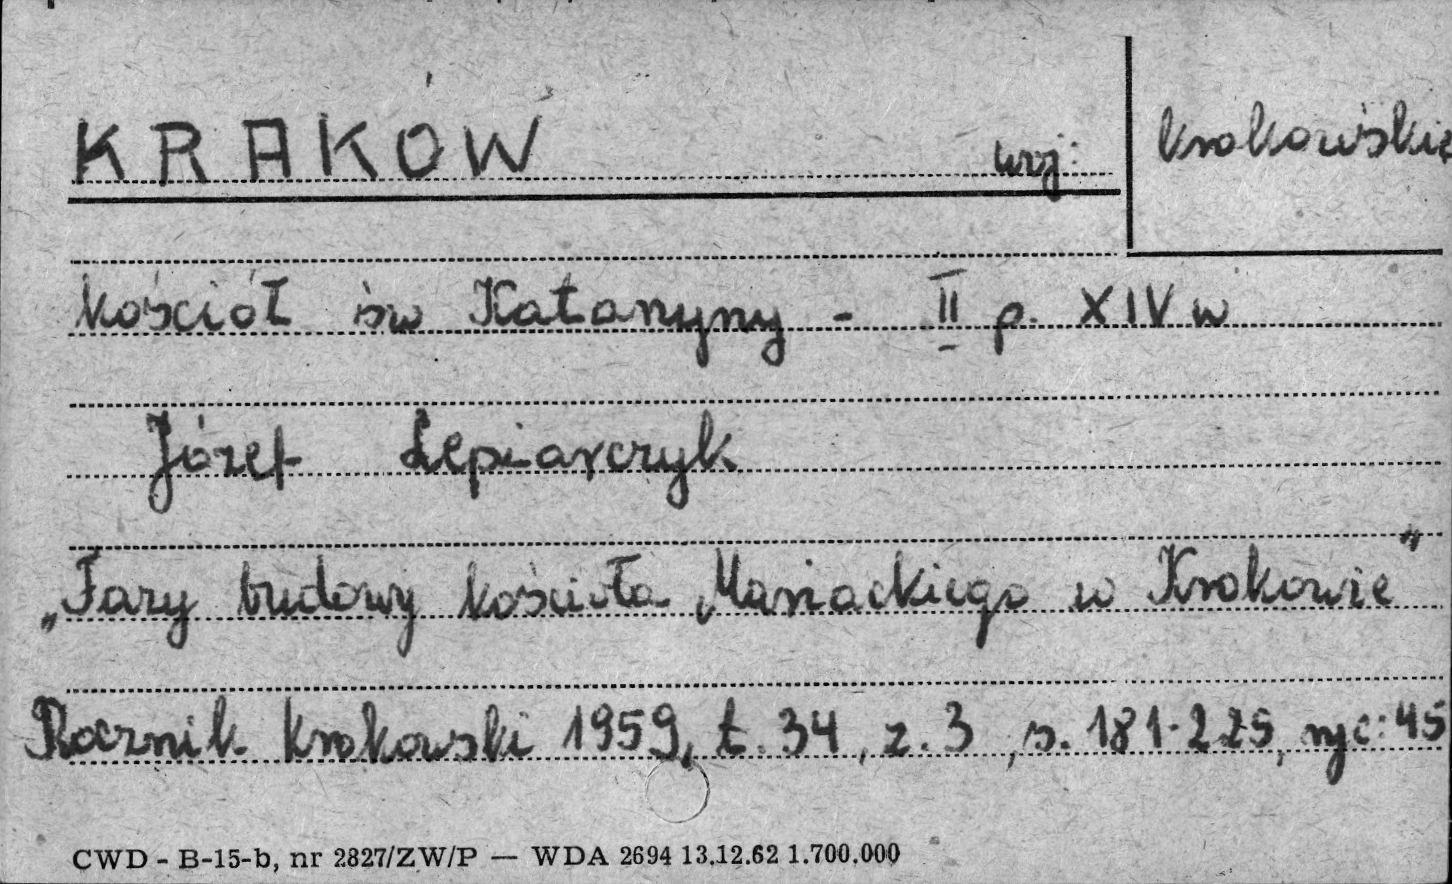 KRAKÓW woj: krakowskie
kościół św Katarzyny - II p. XIV w
Józef Lepiarczyk
„Fazy budowy kościoła Mariackiego w Krakowie"
Rocznik Krakowski 1959, t. 34, z. 3, s. 181-225, ryc: 45
CWD - B-15-b, nr 2827/ZW/P — WDA 2694 13.12.62 1.700.000